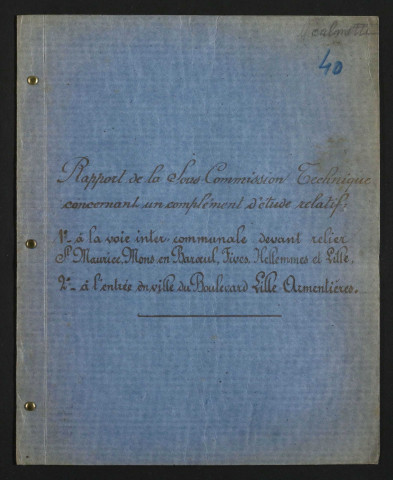 40
Rapport de la Sous-Commission Technique
concernant un complément d'étude relatif:
1º- à la voie inter-communale devant relier
St Maurice, Mons-en-Barœul, Fives, Hellemmes et Lille.
2º- à l'entrée en ville du Boulevard Lille-Armentières.